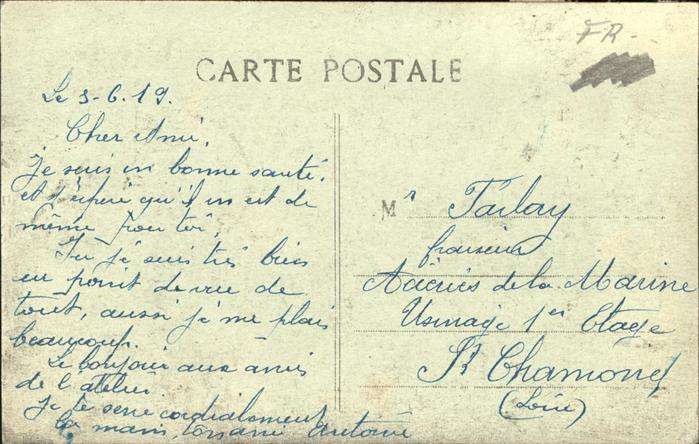 FR-
CARTE POSTALE
Le 3-6.19.
Cher Ami,
Je suis en bonne santé,
et j'espère qu'il en est de
même pour toi,
Ici je suis très bien
au point de vue de
tout, aussi je me plais
beaucoup.
Le bonjour aux amis
de l'atelier
Je te serre cordialement
la main, ton ami Antoine
Mr Tarlay
fraiseur
Aciéries de la Marine
Usinage 1er Etage
St Chamond
(Loire)